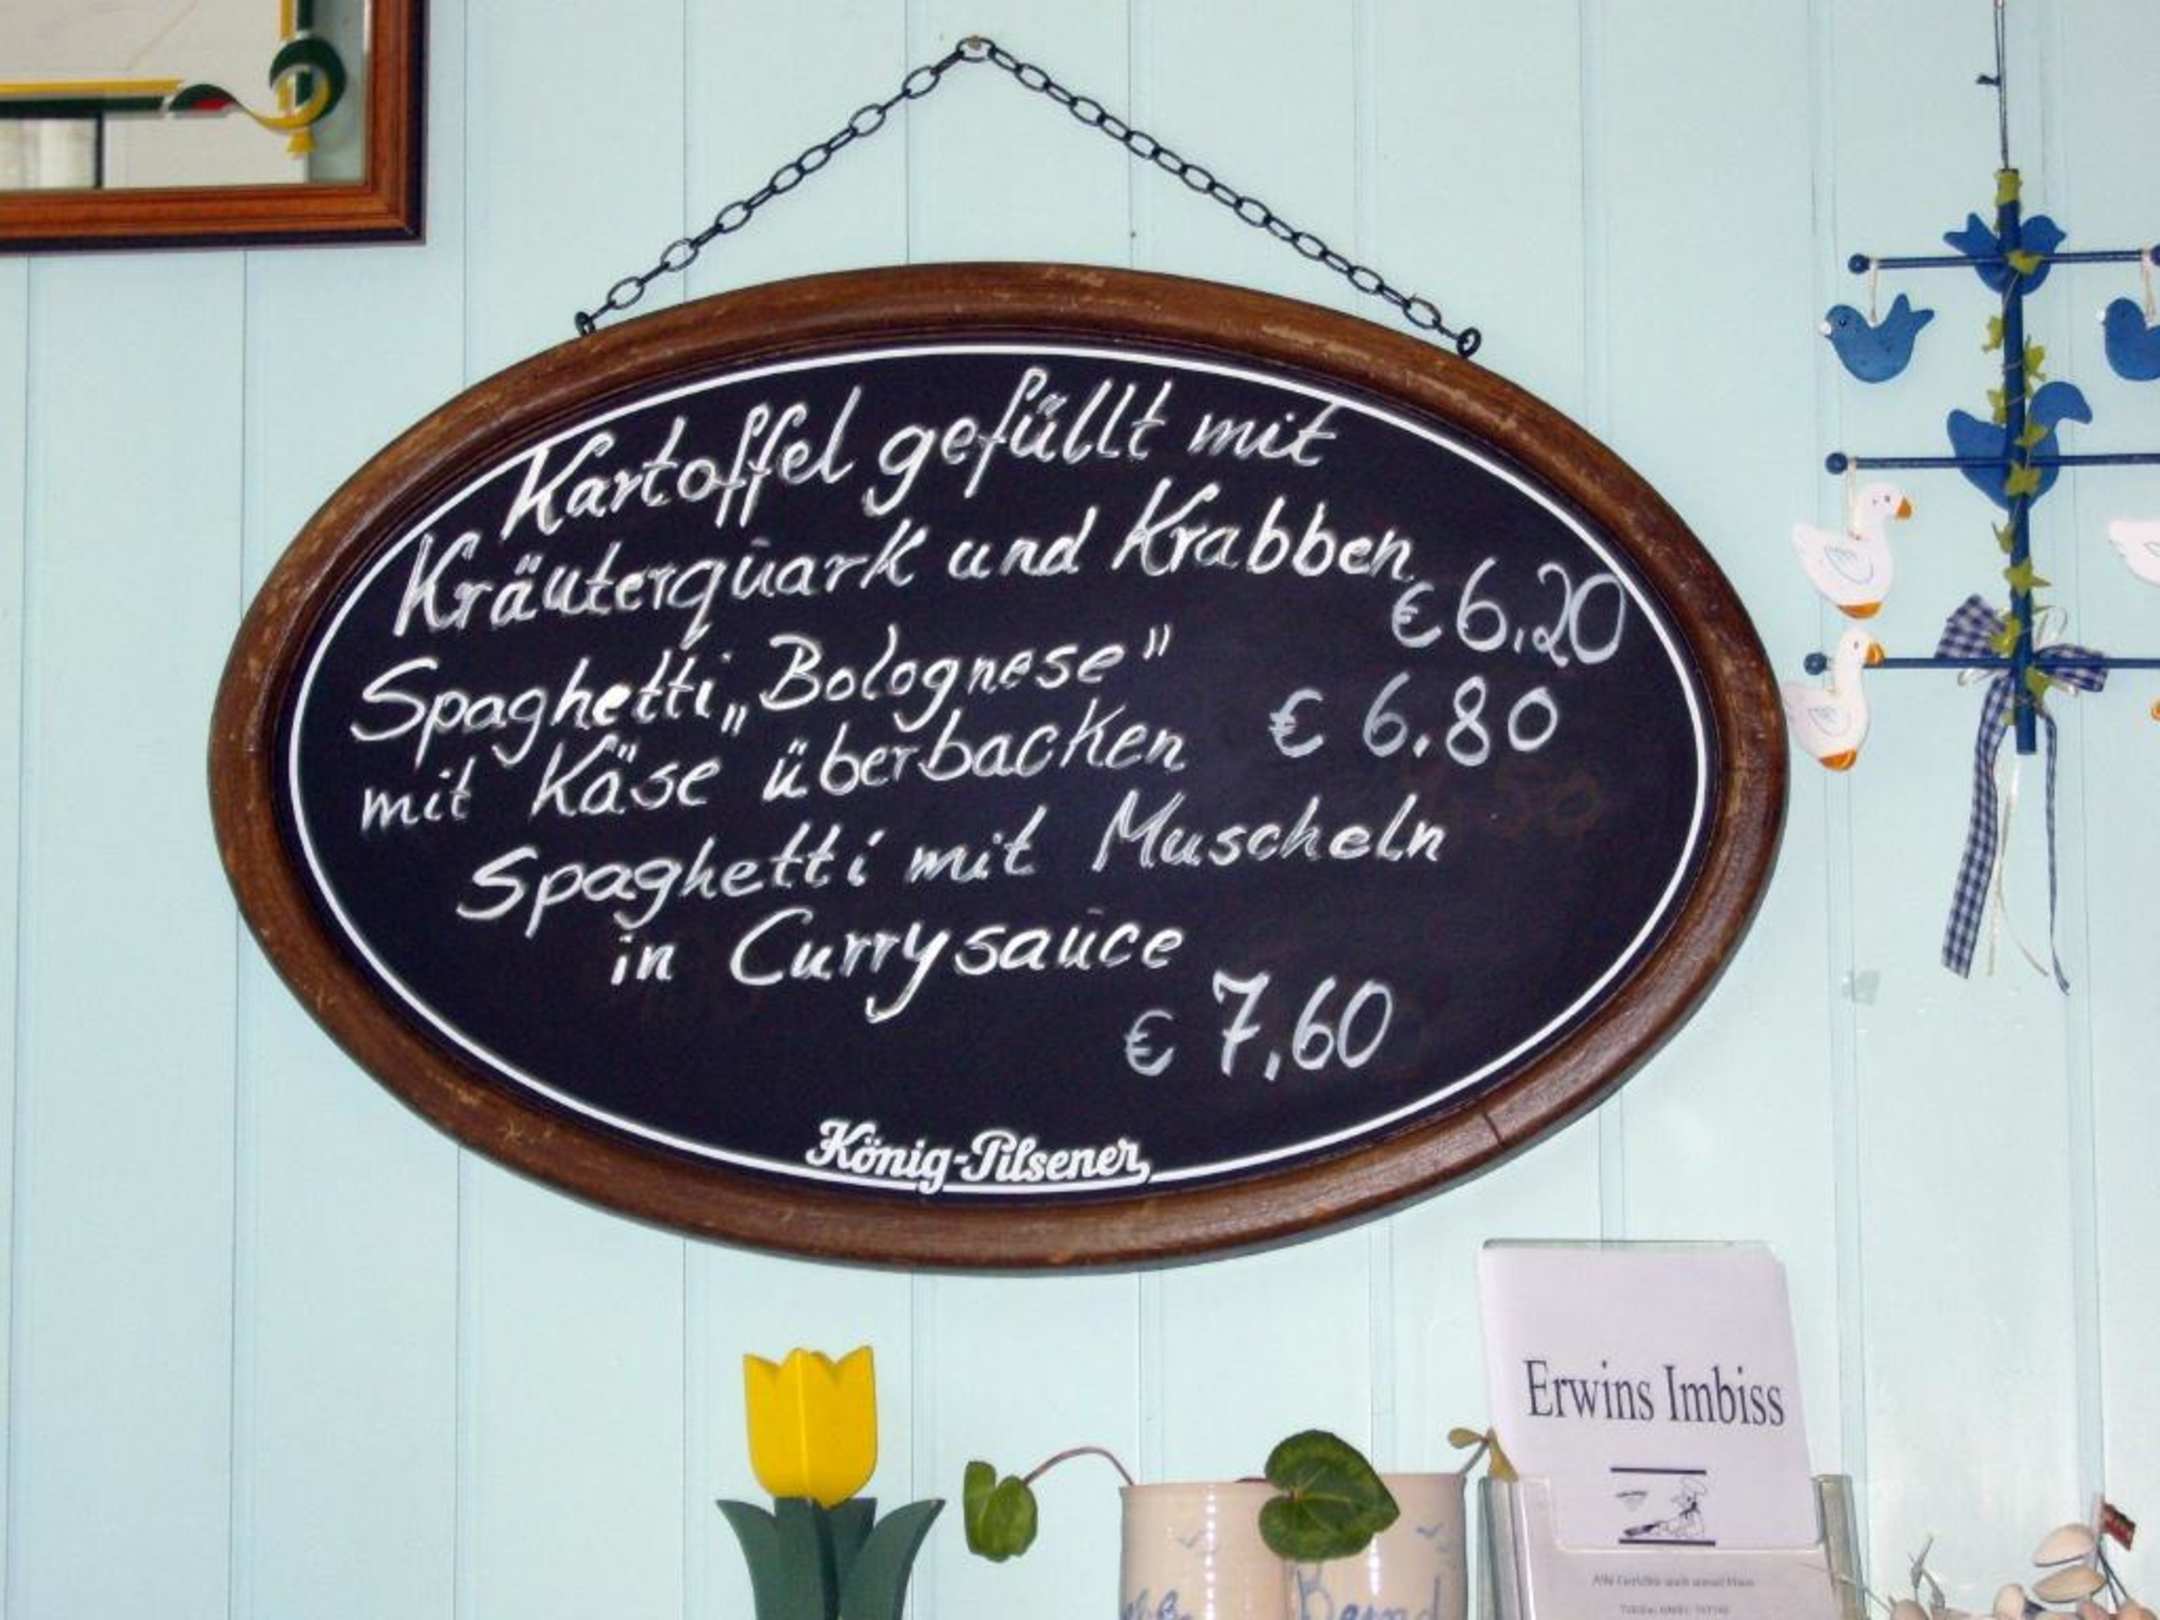 Kartoffel gefüllt mit
Kräuterquark und Krabben
€ 6,20
Spaghetti „Bolognese"
mit Käse überbacken € 6.80
Spaghetti mit Muscheln
in Currysauce
€ 7,60
König-Pilsener
Erwins Imbiss
Bernd